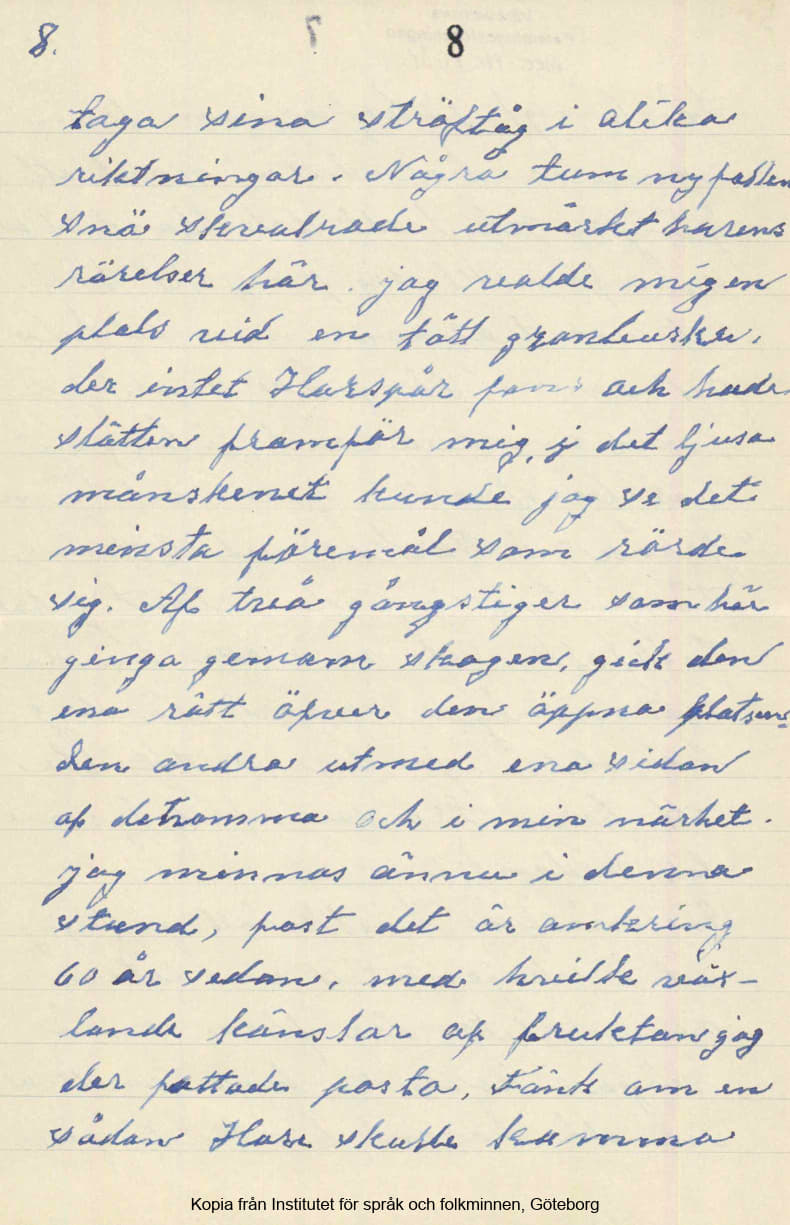 8.
8
taga sina ströftåg i olika
riktningar. Några tum nyfallen
snö skvalrade utmärket harens
rörelser här. jag valde mig en
plats vid en tätt granbuske,
der intet Harspår fans och hade
slätten framför mig, i det ljusa
månskenet kunde jag se det
meinsta föremål som rörde
sig. Af två gångstiger som här
ginga genom skogen, gick den
ena rätt öfver den öppna platsen
den andra utmed ena sidan
af detsamma och i min närhet.
jag minnas ännu i denna
stund, fast det är omkring
60 år sedan, med hvilk väx-
lande känslor af fruktan jag
der fattade posto, tänk om en
sådan Hare skulle komma
Kopia från Institutet för språk och folkminnen, Göteborg